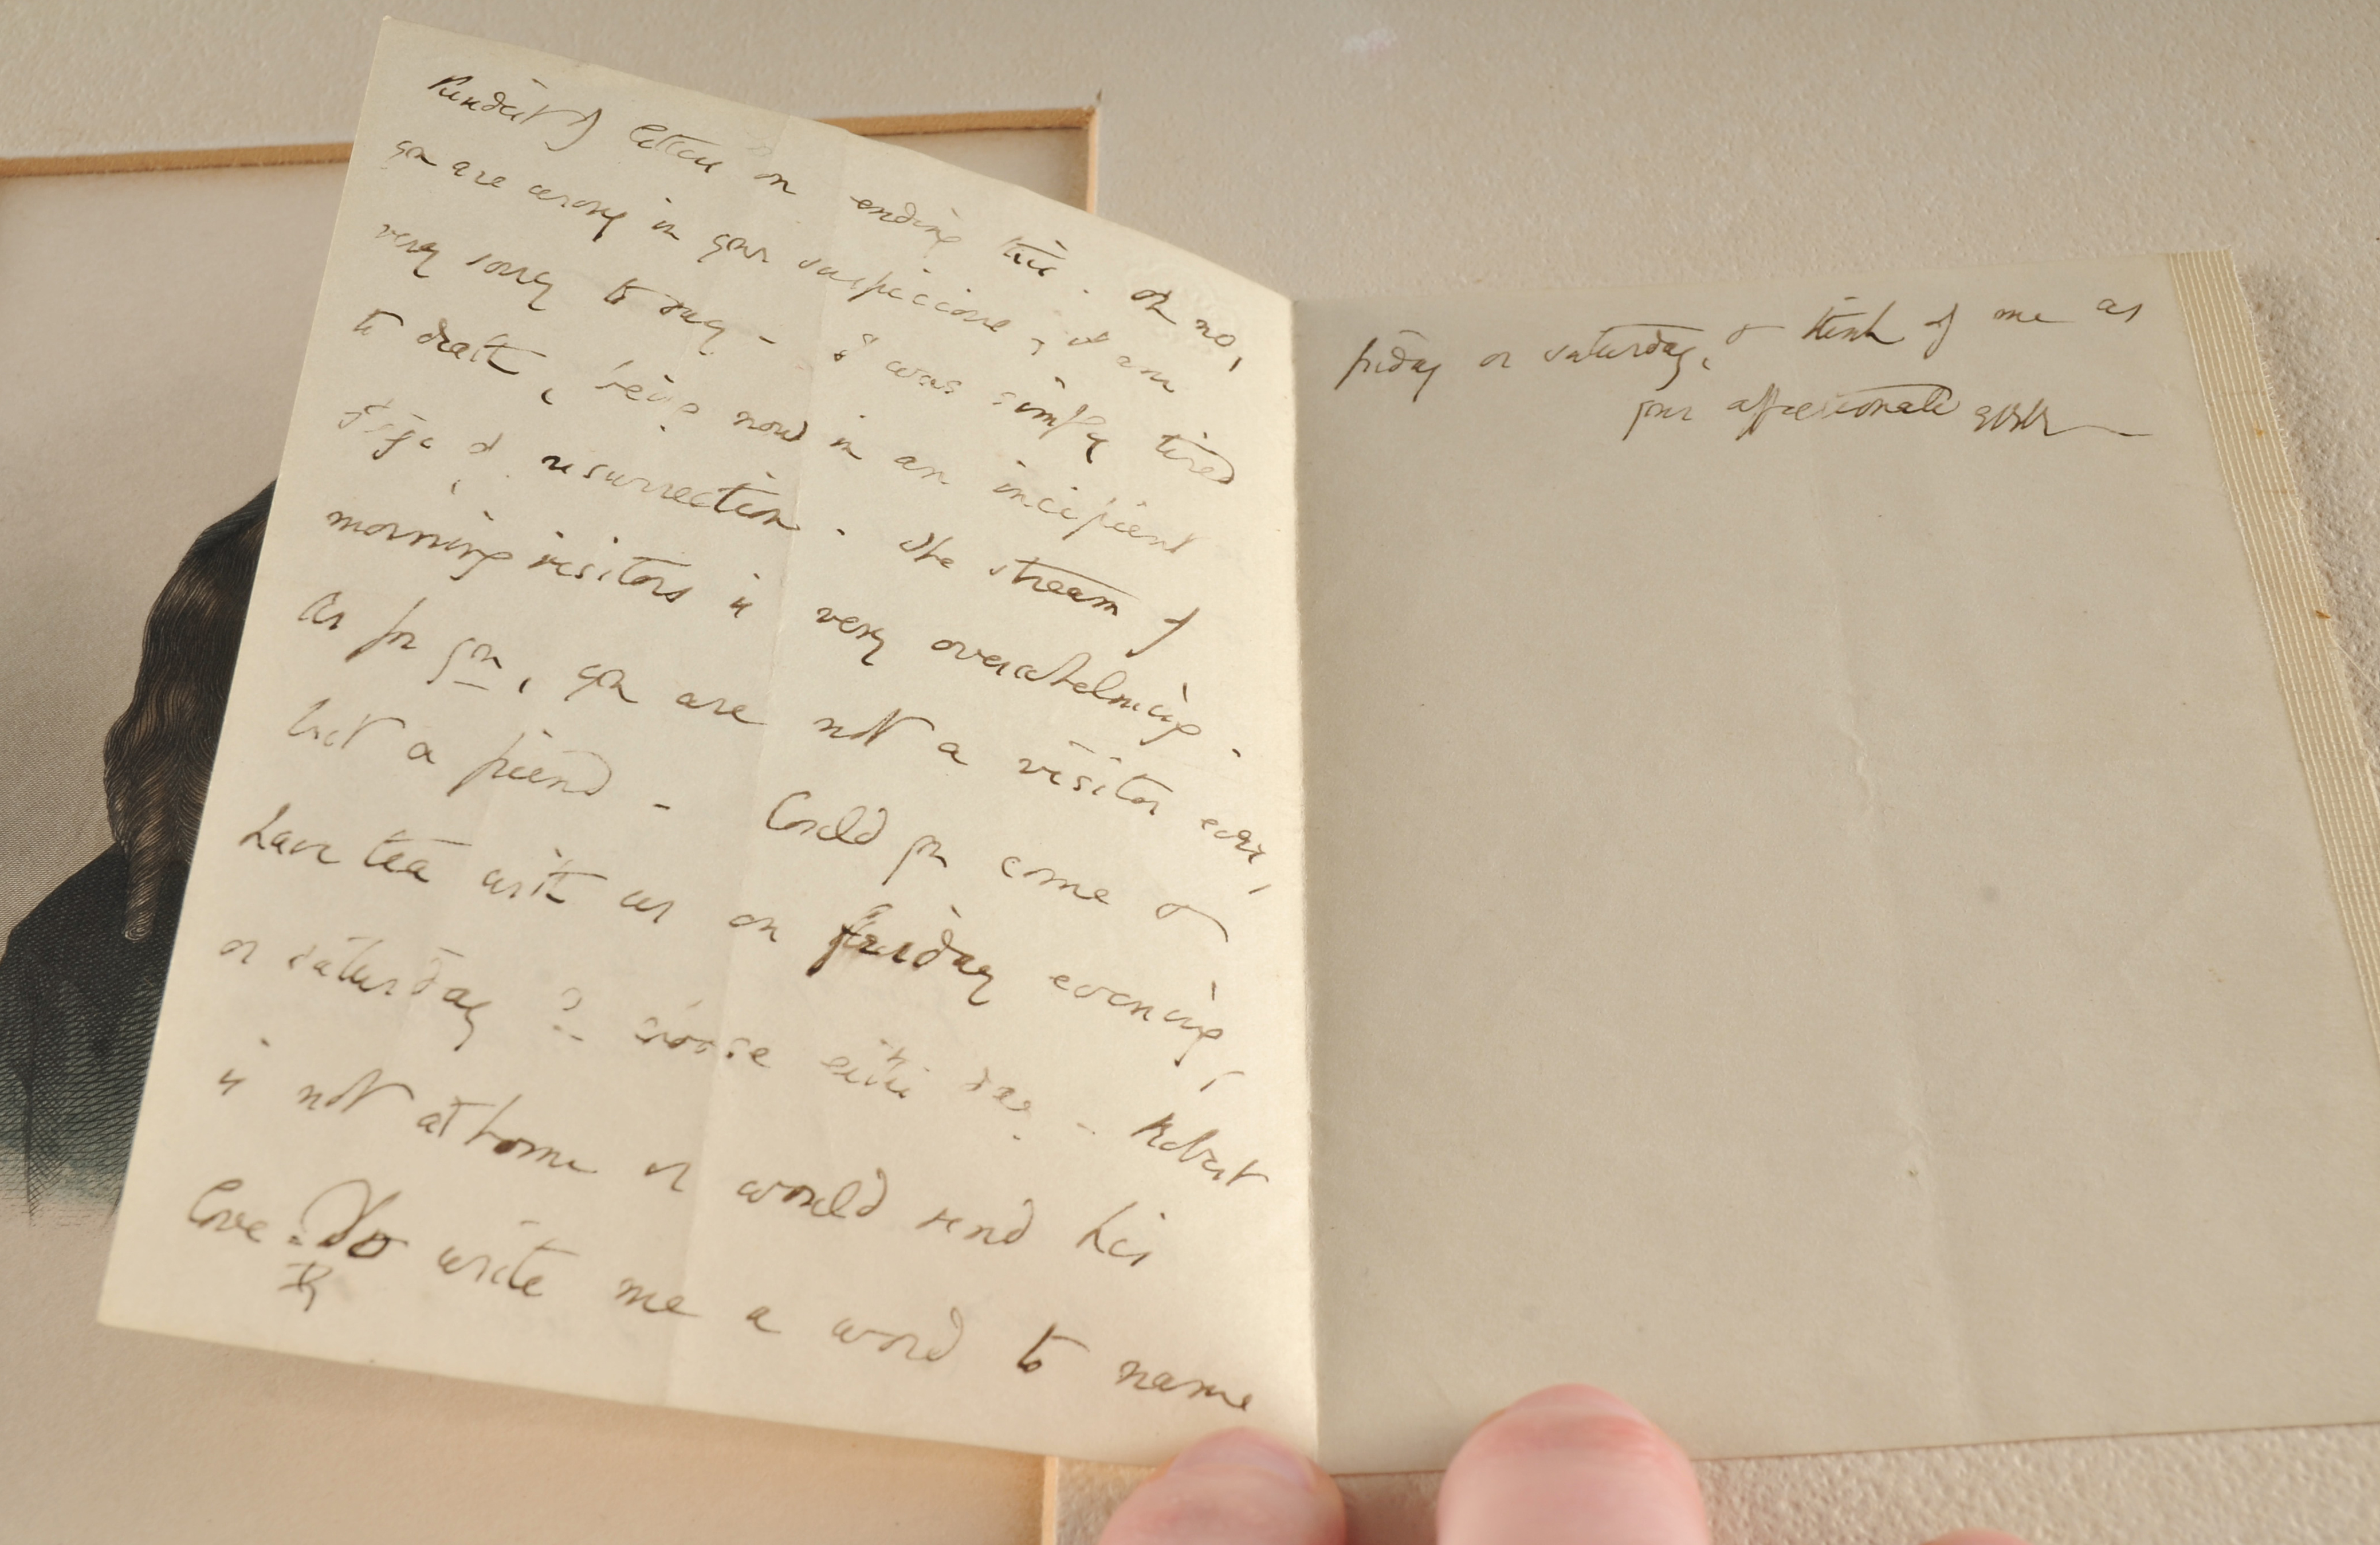 of letters on ending this. Oh no,
you are wrong in your suspicions, I am
very sorry to say - I was simply tired
to death, being now in an incipient
stage of resurrection. The stream of
morning visitors is very overwhelming.
As for you, you are not a visitor
but a friend - Could you come &
have tea with us on Friday evening,
or Saturday? choose either day - Robert
is not at home or would send his
love. Do write me a word to name
friday or saturday, & think of me as
your affectionate